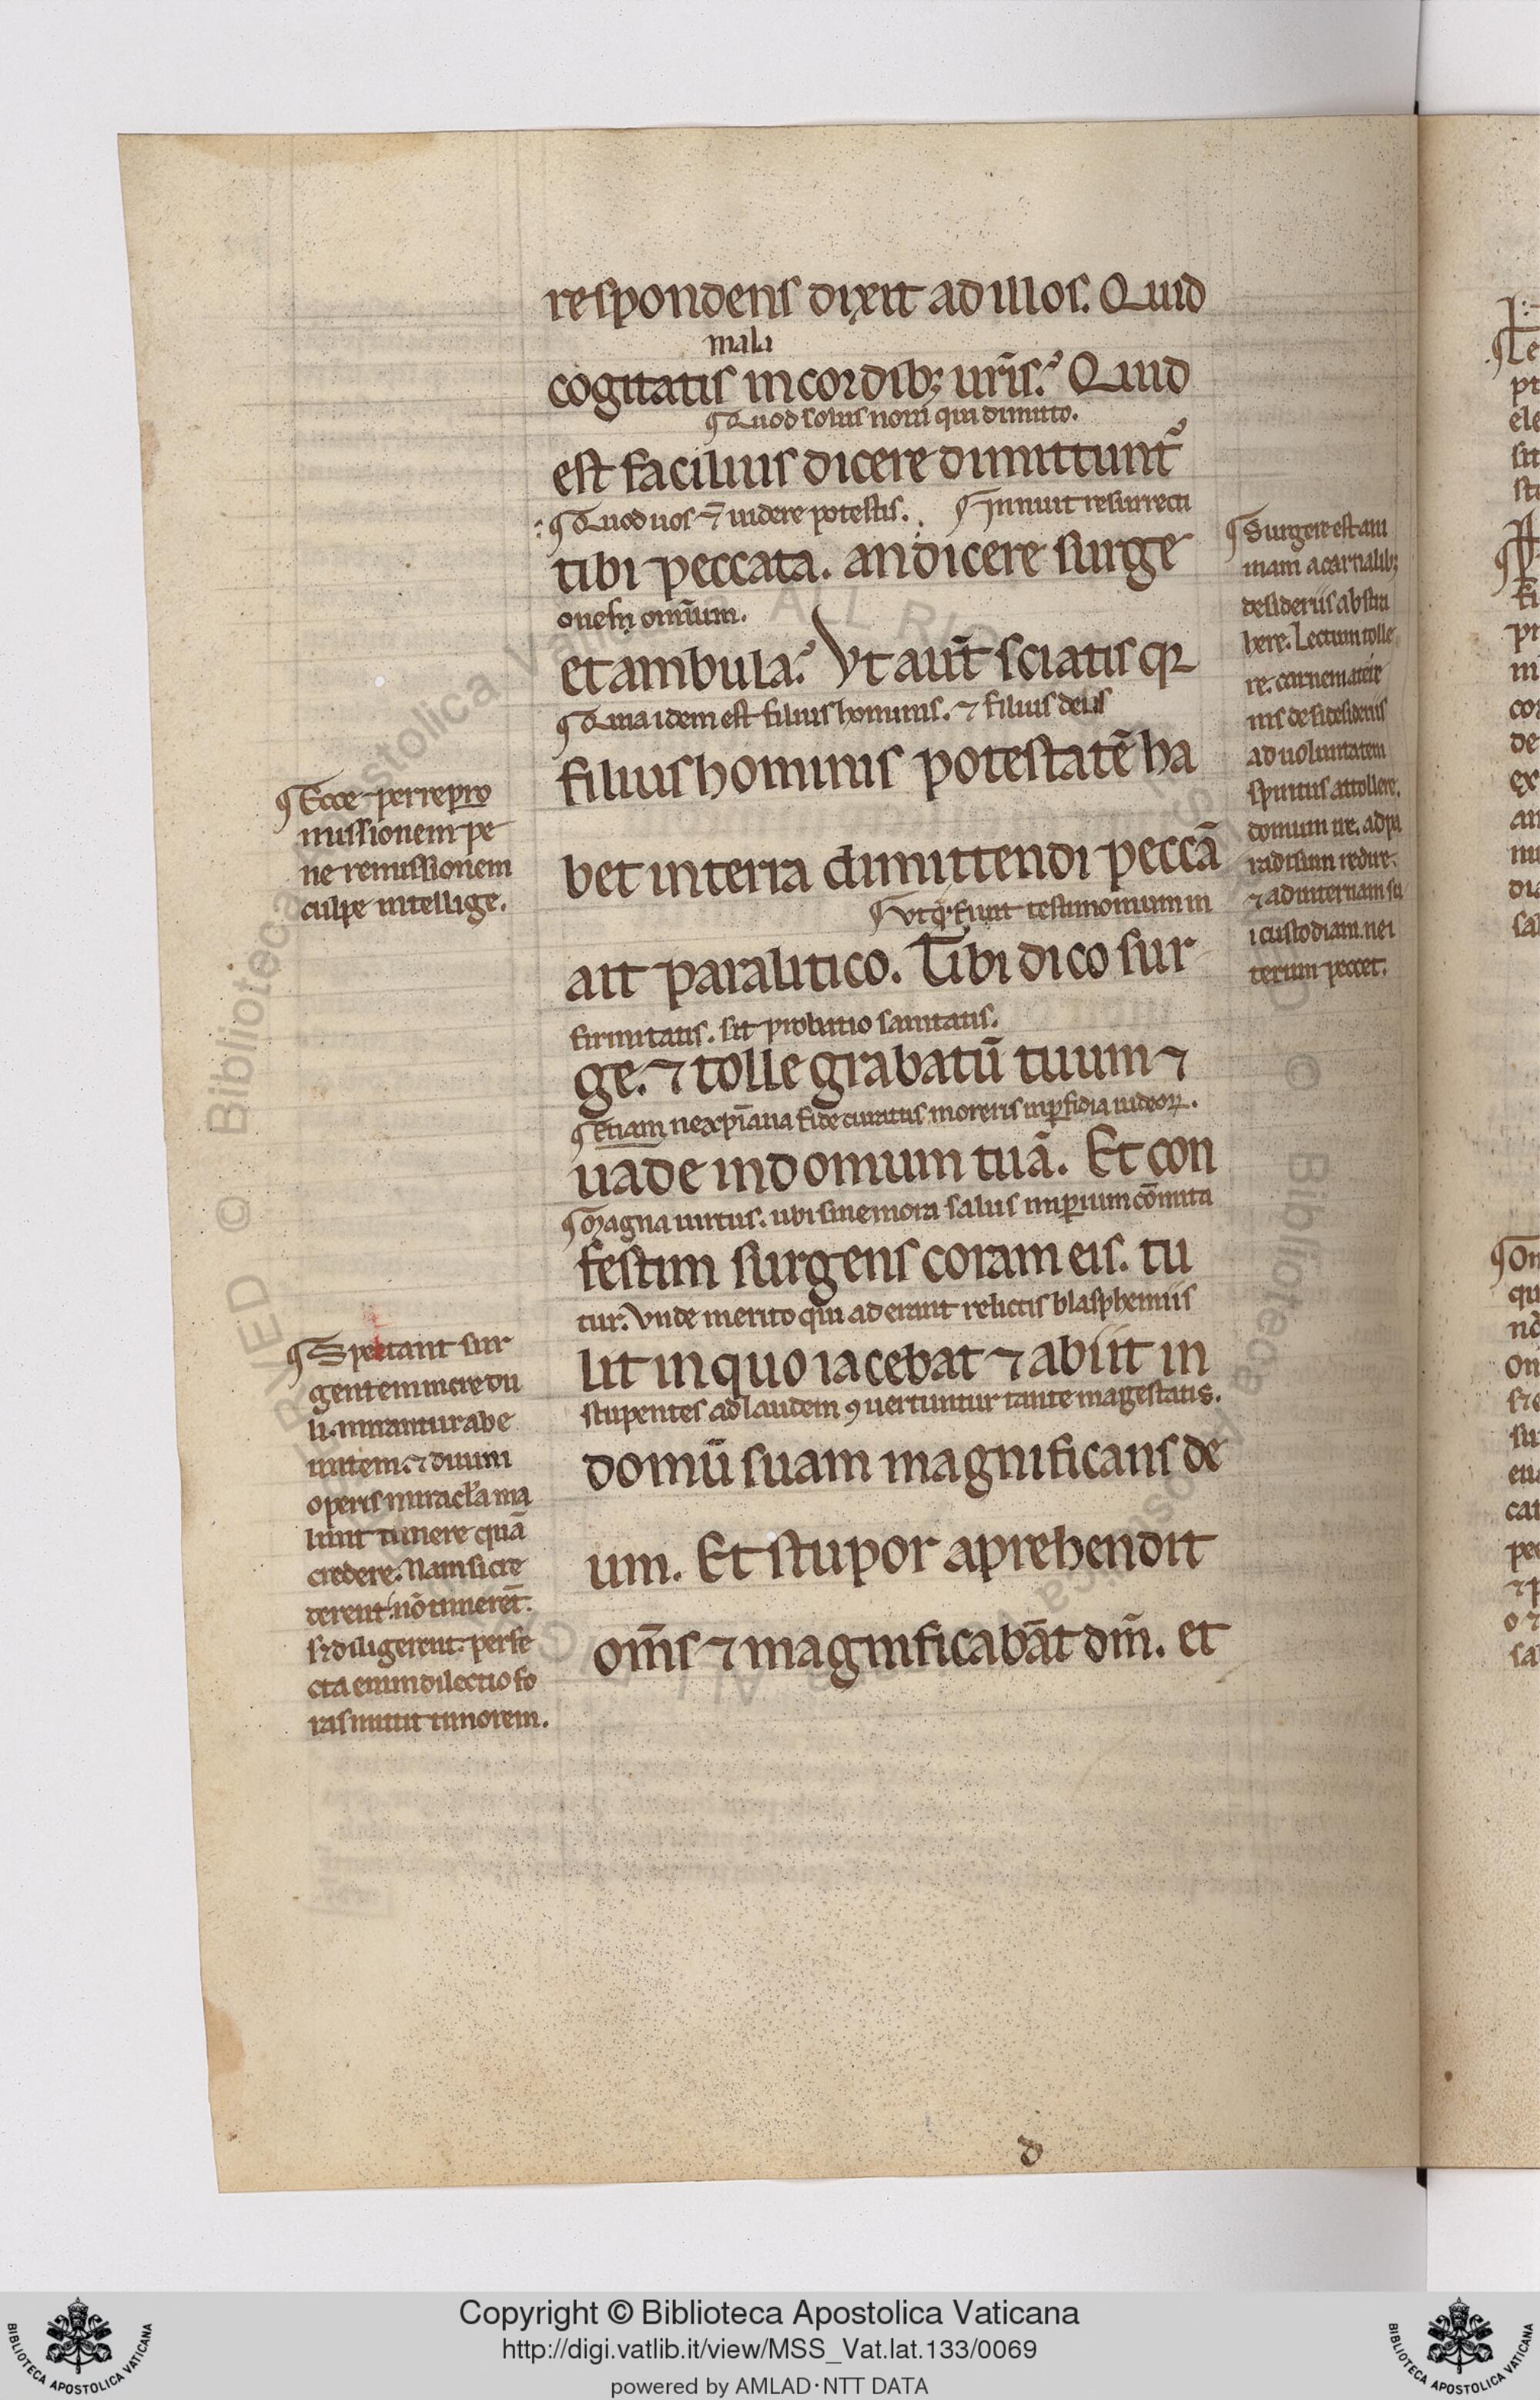 respondens dixit ad illos. Quid
mala
cogitatis in cordib; ur̄is.? Quid
¶ Quod solus noui qui dimitto.
est facilius dicere dimittunt̄?
¶ Quod uos ⁊ uidere potestis. ¶ Innuit resurrecti
tibi peccata. an dicere surge
onem omīum.
et ambula.? Vt aut̄ sciatis qꝛ
¶ Quia idem est filius hominis. ⁊ filius dei
filius hominis potestatē ha
bet in terra dimittendi peccā
¶ Vt qͥ fuit testimonium in
ait paralitico. Tibi dico sur
firmitatis. sit probatio sanitatis.
ge. ⁊ tolle grabatū tuum ⁊
¶ Etiam ne xp̄iana fide curatus moreris in ꝑfidia iudeoꝝ.
uade in domum tuā. Et con
¶ Magna uirtus. ubi sine mora salus imꝑium cōmita
festim surgens coram eis. tu
tur. Vnde merito qui aderant relictis blasphemiis
lit in quo iacebat ⁊ abiit in
stupentes ad laudem ꝯuertuntur tante magestatis.
domū suam magnificans de
um. Et stupor aprehendit
om̄s ⁊ magnificabāt dm̄. et
¶ Ecce per re pro
missionem pe
ne remissionem
culpe intellige.
¶ Spectant sur
gentem incredu
li. mirantur abe
untem. ⁊ diuini
operis miracl̄a ma
lunt timere quā
credere. Nam si cre
derent: nō timerēt.
sꝫ diligerent: perfe
cta enim dilectio fo
ras mittit timorem.
¶ Surgere est ani
mam a carnalib;
desideriis abstra
here. Lectum tolle
re. carnem a terre
nis desideriis
ad uoluntatem
spiritus attollere.
domum ire. ad pa
radisum redire.
⁊ ad internam su
i custodiam. ne i
terum peccet.
d
Copyright © Biblioteca Apostolica Vaticana
http://digi.vatlib.it/view/MSS_Vat.lat.133/0069
powered by AMLAD·NTT DATA
BIBLIOTECA APOSTOLICA VATICANA
BIBLIOTECA APOSTOLICA VATICANA